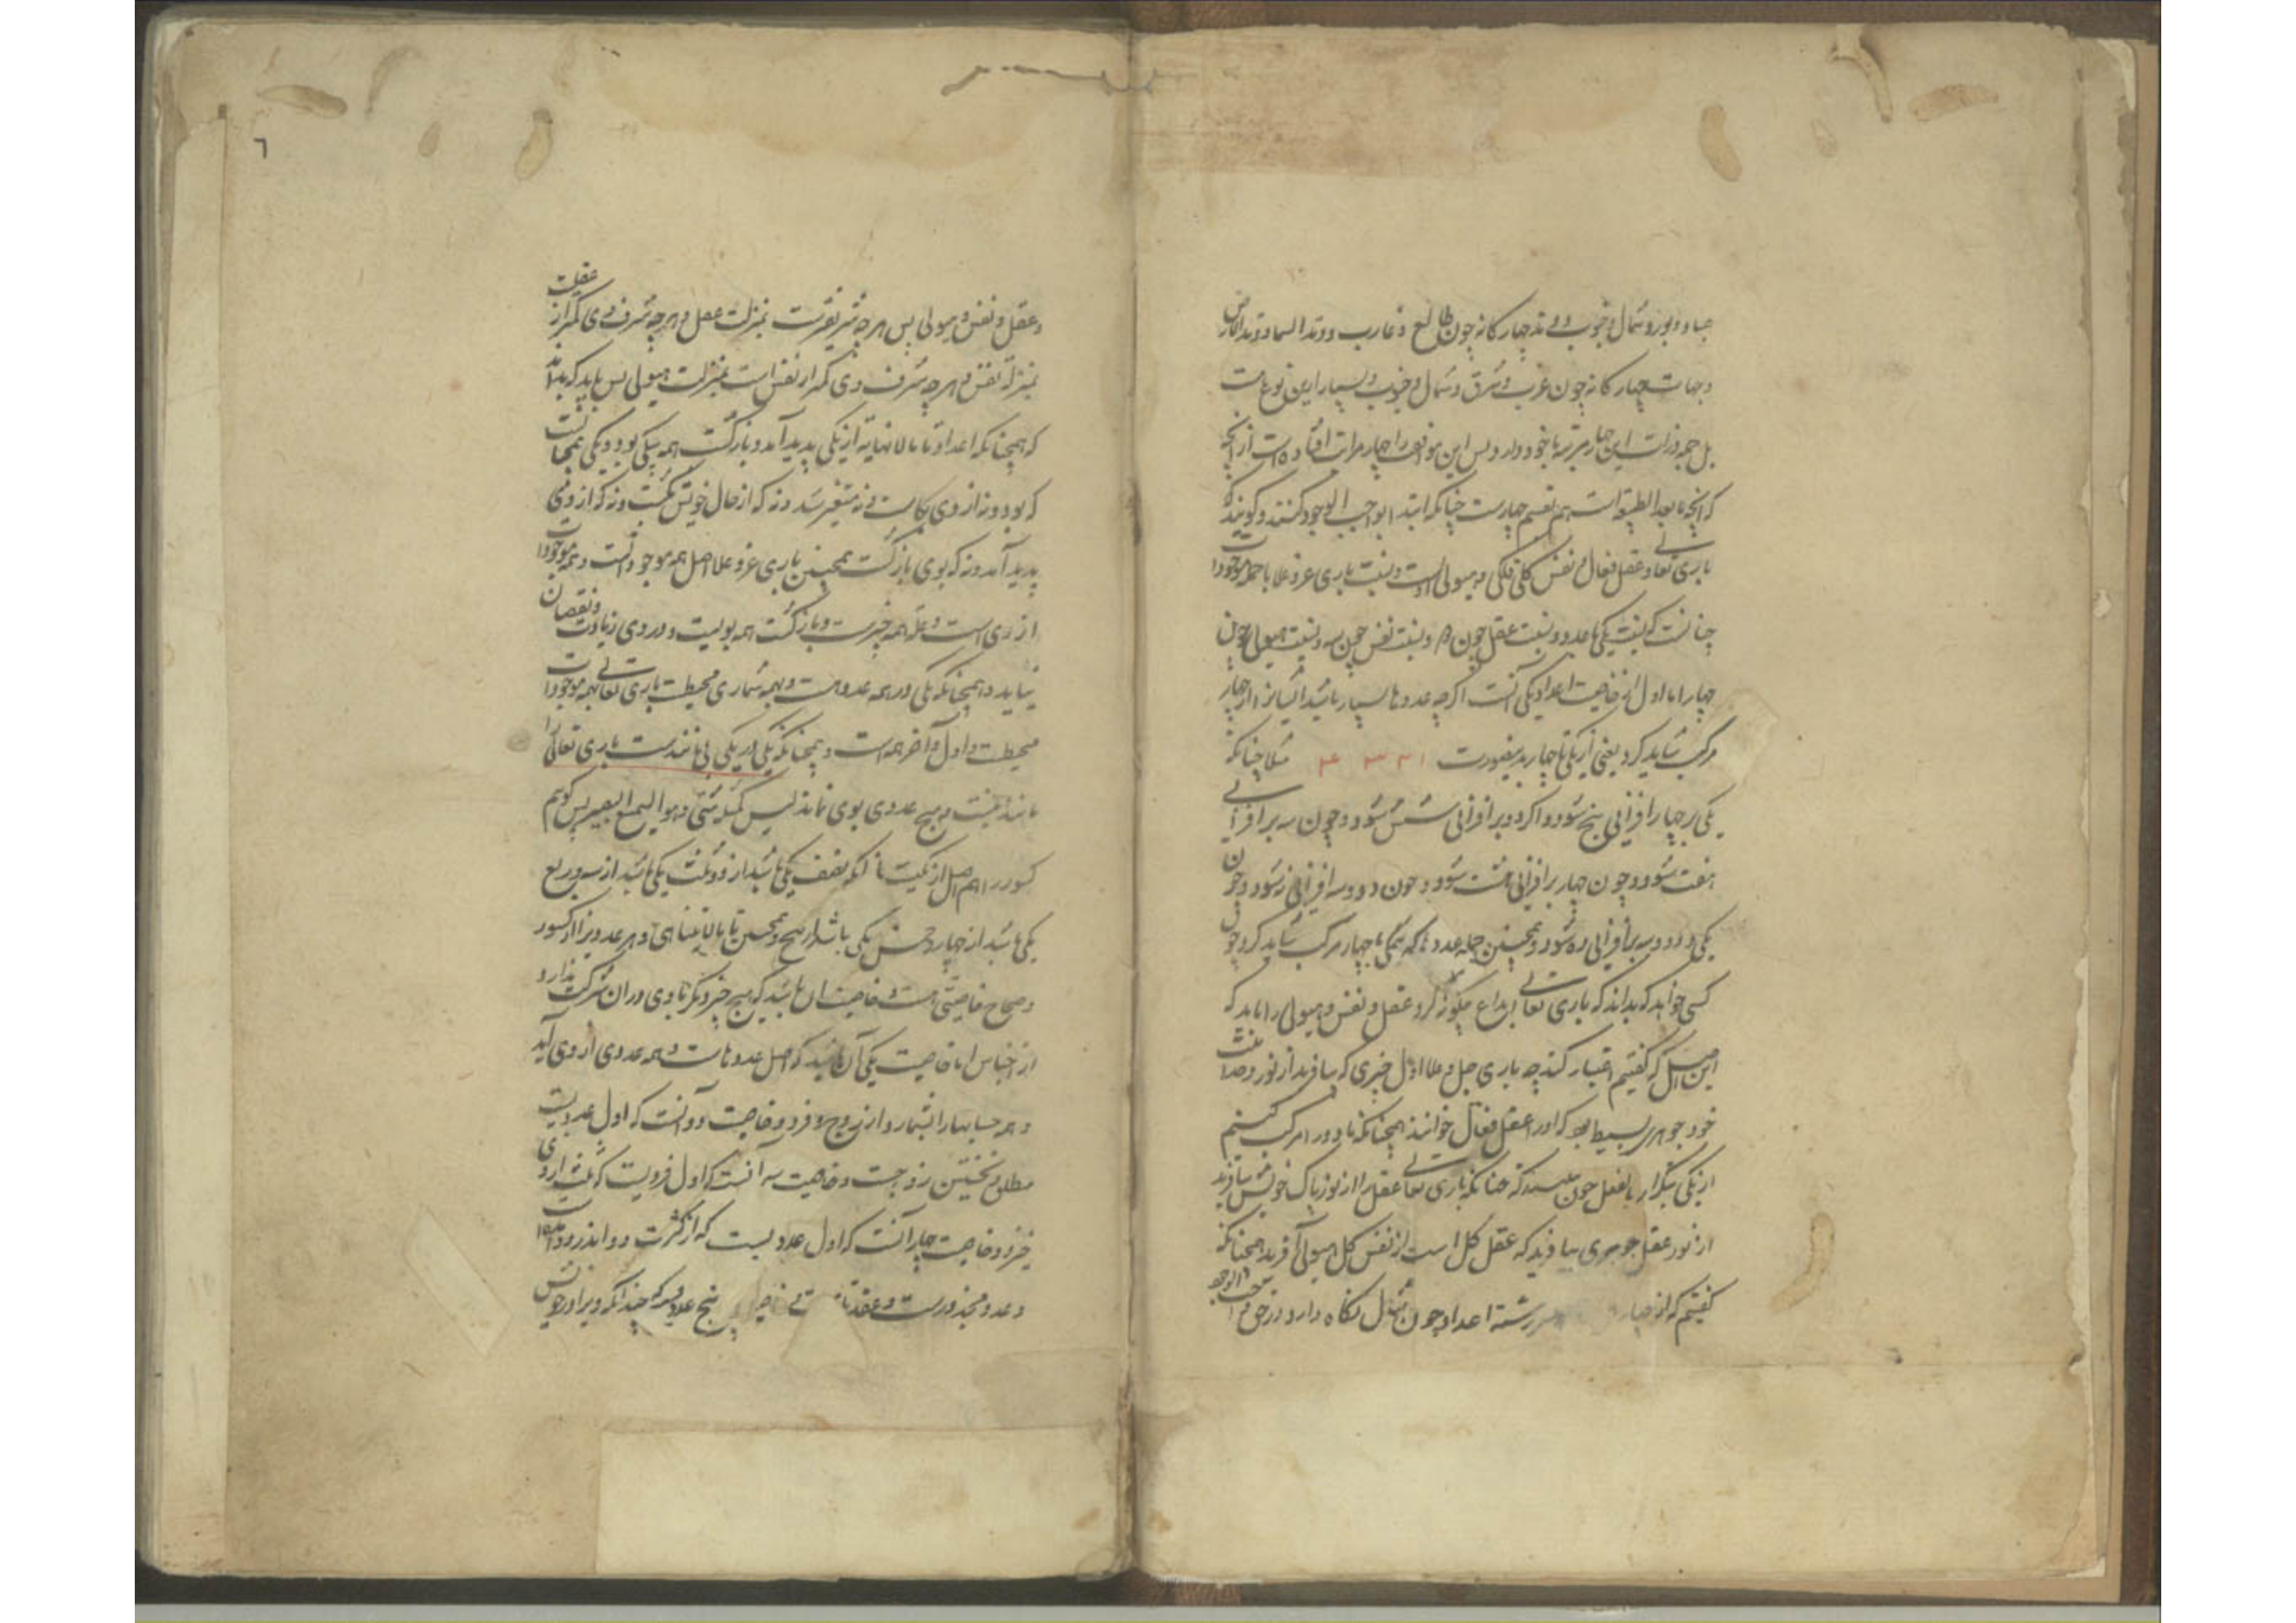 صبا و دبور و شمال و جنوب و وتد چهارگانه چون طالع و غارب و وتد السما و وتد الارض
و جهات چهارگانه چون غرب و شرق و شمال و جنوب و بسیار این نوع است
بل جمله ذرات این چهار مرتبه با خود دارد و پس این مواضع را چهار مراتب افتاده است از آنچه
که آنچه مابعد الطبیعة است هم بقسم چهارست چنانکه ابتدا بواجب الوجود کنند و گویند که
باری تعالی و عقل فعال و نفس کلی فلکی و هیولی است و نسبت باری عز و علا با جمله موجودات
چنانست که نسبت یکی با عدد و نسبت عقل چون ۲ و نسبت نفس چون سه و نسبت هیولی چون
چهار اما اول از خاصیت اعداد یکی آنست اگرچه عددها بسیار باشد ایشانرا از چهار
مرکب شاید کرد یعنی از یکی تا چهار بدینصورت ۱ ۲ ۳ ۴ مثلا چنانکه
یکی بر چهار افزائی پنج شود و اگر دو بر افزائی شش شود و چون سه بر افزائی
هفت شود و چون چهار بر افزائی هشت شود و چون دو و سه افزائی نه شود و چون
یکی و دو و سه بر افزائی ده شود و همچنین جمله عددها که یکی با چهار مرکب شاید کرد چون
کسی خواهد که بداند که باری تعالی ابداع چگونه کرد عقل و نفس و هیولی را باید که
این اصل که گفتیم اعتبار کند چه باری جل و علا اول چیزی که بیافرید از نور وحدانیت
خود جوهری بسیط بود که او را عقل فعال خوانند همچنانکه ما دو را مرکب کنیم
از یکی بتکرار بالفعل چون چنانکه باری تعالی عقل را از نور پاک خویش بیافرید
از نور عقل جوهری بیافرید که عقل کل است از نفس کل هیولی آفرید همچنانکه
گفتیم که از چهار رشته اعداد چون شاول نگاه دارد در حق واجب الوجود
٦
و عقل و نفس و هیولی پس هر چه شریفترست بمنزلت عقل و هر چه شرف وی کمتر از عقلست
بمنزله نفس و هر چه شرف وی کمتر از نفس است بمنزلت هیولی پس باید که بداند
که همچنانکه اعداد تا مالانهایه از یکی پدید آمد و بازگشت همه بیکی بود و یکی همچنانست
که بود و نه از وی بکاست و نه متغیر شد و نه که از حال خویش بگشت و نه که از وی
پدید آمد و نه که بوی بازگشت همچنین باری عز و علا اصل همه موجوداتست و همه موجودات
از وی است و علة همه چیزست و بازگشت همه بویست و در وی زیادت و نقصان
نیاید و همچنانکه یکی در همه عددهاست و بهمه شماری محیطست باری تعالی بهمه موجودات
محیطست و اول و آخر همه است و همچنانکه یکی در یکی بی مانندست باری تعالی را
مانند نیست و هیچ عددی بوی نماند لیس کمثله شئ و هو السمیع البصیر پس گویم
کسور را هم اصل از یکیست تا آنکه نصف یکی باشد از دو و ثلث یکی باشد از سه و ربع
یکی باشد از چهار و خمس یکی باشد از پنج و همچنین تا مالایتناهی و هر عددیرا از کسور
و صحاح خاصیتی است و خاصیت آن باشد که هیچ چیز دیگر با وی در آن شرکت ندارد
از اجناس اما خاصیت یکی آن باشد که اصل عددهاست و همه عددی از وی آید
و همه حسابهارا بشمارد از زوج و فرد و خاصیت دو آنست که اول عددیست
مطلق و نخستین زوجست و خاصیت سه آنست که اول فردیست که از وی
خیزد و خاصیت چهار آنست که اول عددیست که از کثرت دو اندر دو است
و عدد مجذورست و عقد پنج عددیست که چندانکه ویرا در خویش